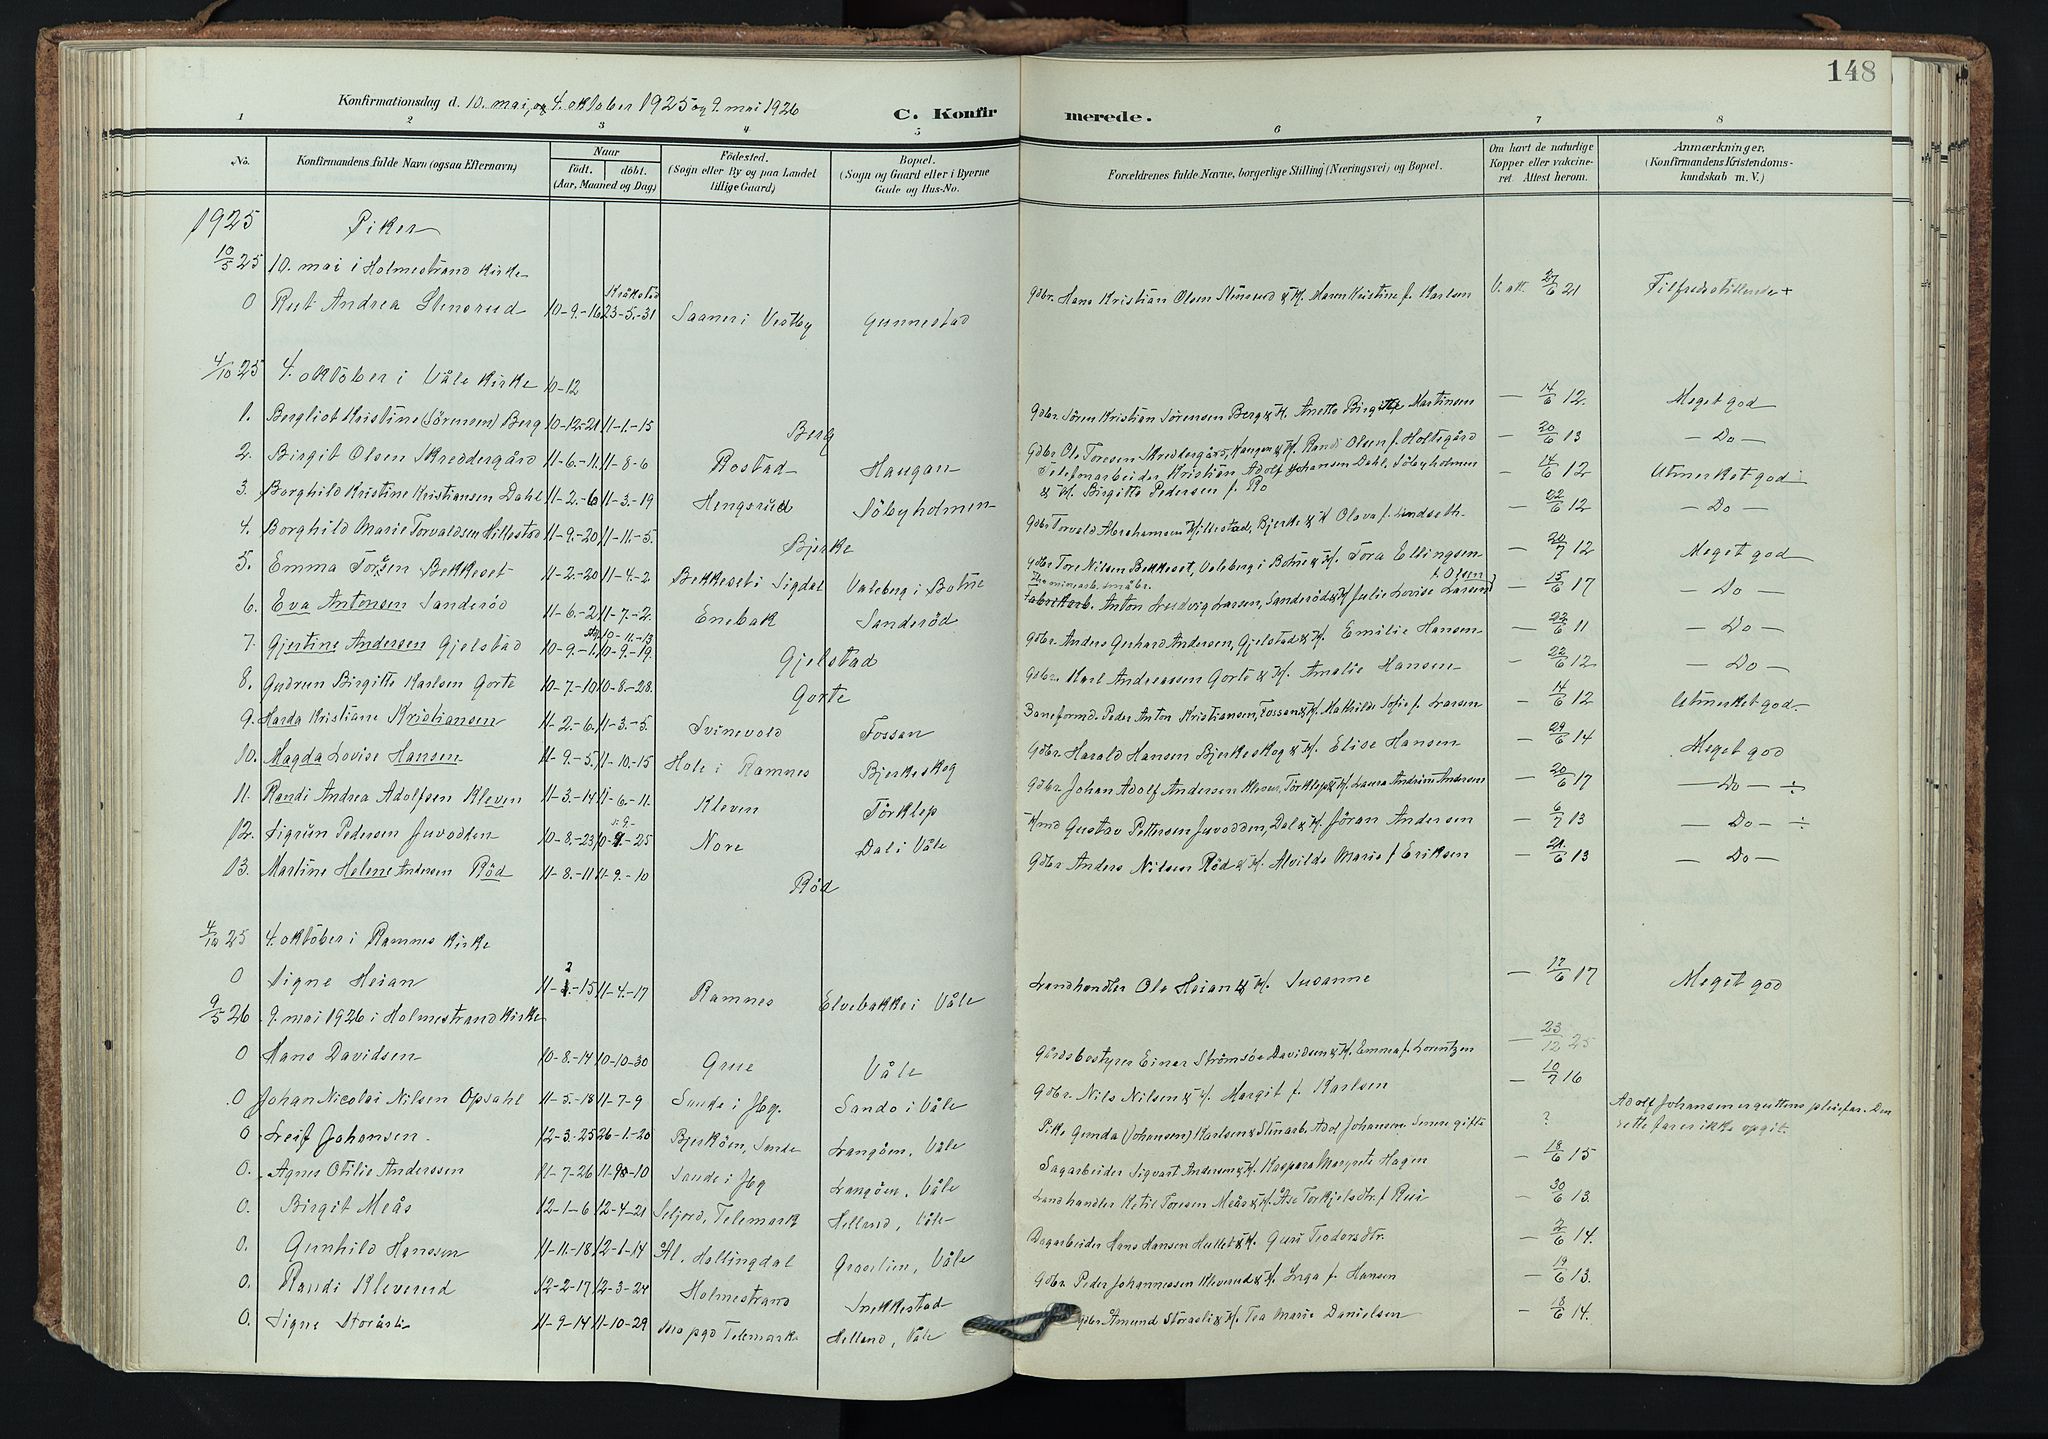 148
Konfirmationsdag d. 10. mai, og 4. oktober 1925 og 9. mai 1926 C. Konfirmerede.
1 2 3 4 5 6 7 8
No. Konfirmandens fulde Navn (ogsaa Efternavn) Naar født. døbt. (Aar, Maaned og Dag) Fødested. (Sogn eller By og paa Landet tillige Gaard) Bopæl. (Sogn og Gaard eller i Byerne Gade og Hus-No. Forældrenes fulde Navne, borgerlige Stilling (Næringsvei) og Bopæl. Om havt de naturlige Kopper eller vakcineret. Attest herom. Anmærkninger. (Konfirmandens Kristendomskundskab m. V.)
1925 Piker
10/5 25 10. mai i Holmestrand Kirke
0 Rut Andrea Stensrud 10-9-16 Kråkstad 23-5-31 Saaner i Vestby Gunnestad Gdbr. Hans Kristian Olsen Stensrud & H. Maren Kristine f. Karlsen V. att. 27/6 21 Tilfredsstillende +
4/10 25 4. oktober i Våle Kirke 10-12
1. Bergliot Kristine (Sørensen) Berg 10-12-21 11-1-15 Berg Gdbr. Søren Kristian Sørensen Berg & H. Anette Birgitte Martinsen — 14/6 12. Meget god
2. Birgit Olsen Skreddergård 11-6-11. 11-8-6 Rostad Haugan Gdbr Ole Toresen Skreddergård, Haugan & H. Randi Olsen f. Holtegård — 20/6 13 — Do —
3. Borghild Kristine Kristiansen Dahl 11-2-6 11-3-19 Hengsrud Söbyholmen Telefonarbeider Kristian Adolf Johansen Dahl, Söbyholmen & H. Birgitte Pedersen f. Ro — 14/6 12 Utmerket god
4. Borghild Marie Torvaldsen Hillestad 11-9-20 11-11-5. Bjerke Gdbr Torvald Abrahamsen Hillestad, Bjerke & H Olava f. Lindseth — 22/6 12 — Do —
5. Emma Toresen Bekkeset 11-2-20 11-4-2 Bekkeset i Sigdal Valeberg i Botne Gdbr Tore Nilsen Bekkeset, Valeberg i Botne & H. Tora Ellingsen — 20/7 12 Meget god
6. Eva Antonsen Sanderöd 11-6-2 11-7-2. Enebak Sanderöd Anton Ludvig Larsen, Sanderöd & H Julie Lovise Larsen f. Olsen — 15/6 17 — Do —
7. Gjertine Andersen Gjelstad 10-9-1. 10-11-13 10-9-19. Gjelstad Gdbr Anders Gerhard Andersen, Gjelstad & H. Emilie Hansen — 22/6 11 — Do —
8. Gudrun Birgitte Karlsen Gorte 10-7-10 10-8-28. Gorte Gdbr. Karl Andreassen Gorte & H. Amalie Hansen — 22/6 12 — Do —
9. Harda Kristiane Kristiansen 11-2-6. 11-3-5. Svinevold Fossan Baneformd. Peder Anton Kristiansen, Fossan & H. Mathilde Sofie f. Larsen — 14/6 12 Utmerket god.
10. Magda Lovise Hansen 11-9-5. 11-10-15 Hole i Ramnes Bjerkeskog Gdbr. Harald Hansen Bjerkeskog & H. Elise Hansen — 29/6 14 Meget god
11. Randi Andrea Adolfsen Kleven 11-3-14 11-6-11. Kleven Törklep Gdbr. Johan Adolf Andersen Kleven, Törklep & H. Laura Andrine Andersen — 20/6 17 — Do — ÷
12. Sigrun Pedersen Juvodden 10-8-23 10-9-25 Nore Dal i Våle Hmd Gustav Pettersen Juvodden, Dal & H. Jöran Andersen — 6/7 13 — Do — ÷
13. Martine Helene Andersen Röd 11-8-11 11-9-10 Röd Gdbr Anders Nilsen Röd & H. Alvilde Marie f Eriksen — 21/6 13 — Do —
4/10 25 4. oktober i Ramnes Kirke
0 Signe Heian 11-2-15 11-4-17 Ramnes Elvebakke i Våle Landhandler Ole Heian & H. Susanne — 17/6 17 Meget god
9/5 26 9. mai 1926 i Holmestrand Kirke
0 Hans Davidsen 10-8-14 10-10-30 Grue Våle Gårdsbestyrer Einar Strömsöe Davidsen & H. Emma f. Lorentzen — 23/12 25
0 Johan Nicolai Nilsen Opsahl 11-5-18 11-7-9 Sande i Jbg. Sando i Våle Gdbr. Nils Nilsen & H. Margit f. Karlsen — 10/7 16
0 Leif Johansen. 12-3-25 26-1-20 Bjerköen, Sande Langöen, Våle Pike Gunda (Johansen) Karlsen & Stenarb. Adolf Johansen. Senere gifte ? Adolf Johansen er guttens pleiefar. Den rette far er ikke opgit.
0. Agnes Otilie Anderssen 11-7-26 11-9-10 Sande i Jbg Langöen, Våle Sagarbeider Sigvart Andersen & H. Kaspara Margrete Hagen — 18/6 15
0. Birgit Meås 12-1-6 12-4-21 Seljord, Telemark Helland, Våle Landhandler Ketil Toresen Meås & H. Åse Torkjelsdtr. f Rui — 30/6 13.
0. Gunhild Hanssen 11-11-18 12-1-14 Ål, Hallingdal Graaelien, Våle Dagarbeider Hans Hansen Hullet & H. Guri Teodorsdtr. — 2/6 14.
0. Randi Kleverud 12-2-17 12-3-24 Holmestrand Snekkestad Gdbr. Peder Johannessen Kleverud & H. Inga f. Hansen — 19/6 13.
0. Signe Storåsli 11-9-14 11-10-29 pgd Telemark Helland, Våle Gdbr Åmund Storaasli & H. Tea Marie Danielsen — 18/6 14.